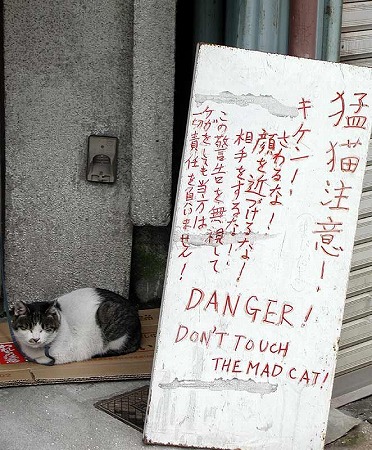 猛猫注意ー、!
キケンー、!
さわるな!
顔を近づけるな!
相手をするなー、!
この警告を無視して
ケガをしても当方は
一切責任を負いません!
DANGER!
DON'T TOUCH
THE MAD CAT!